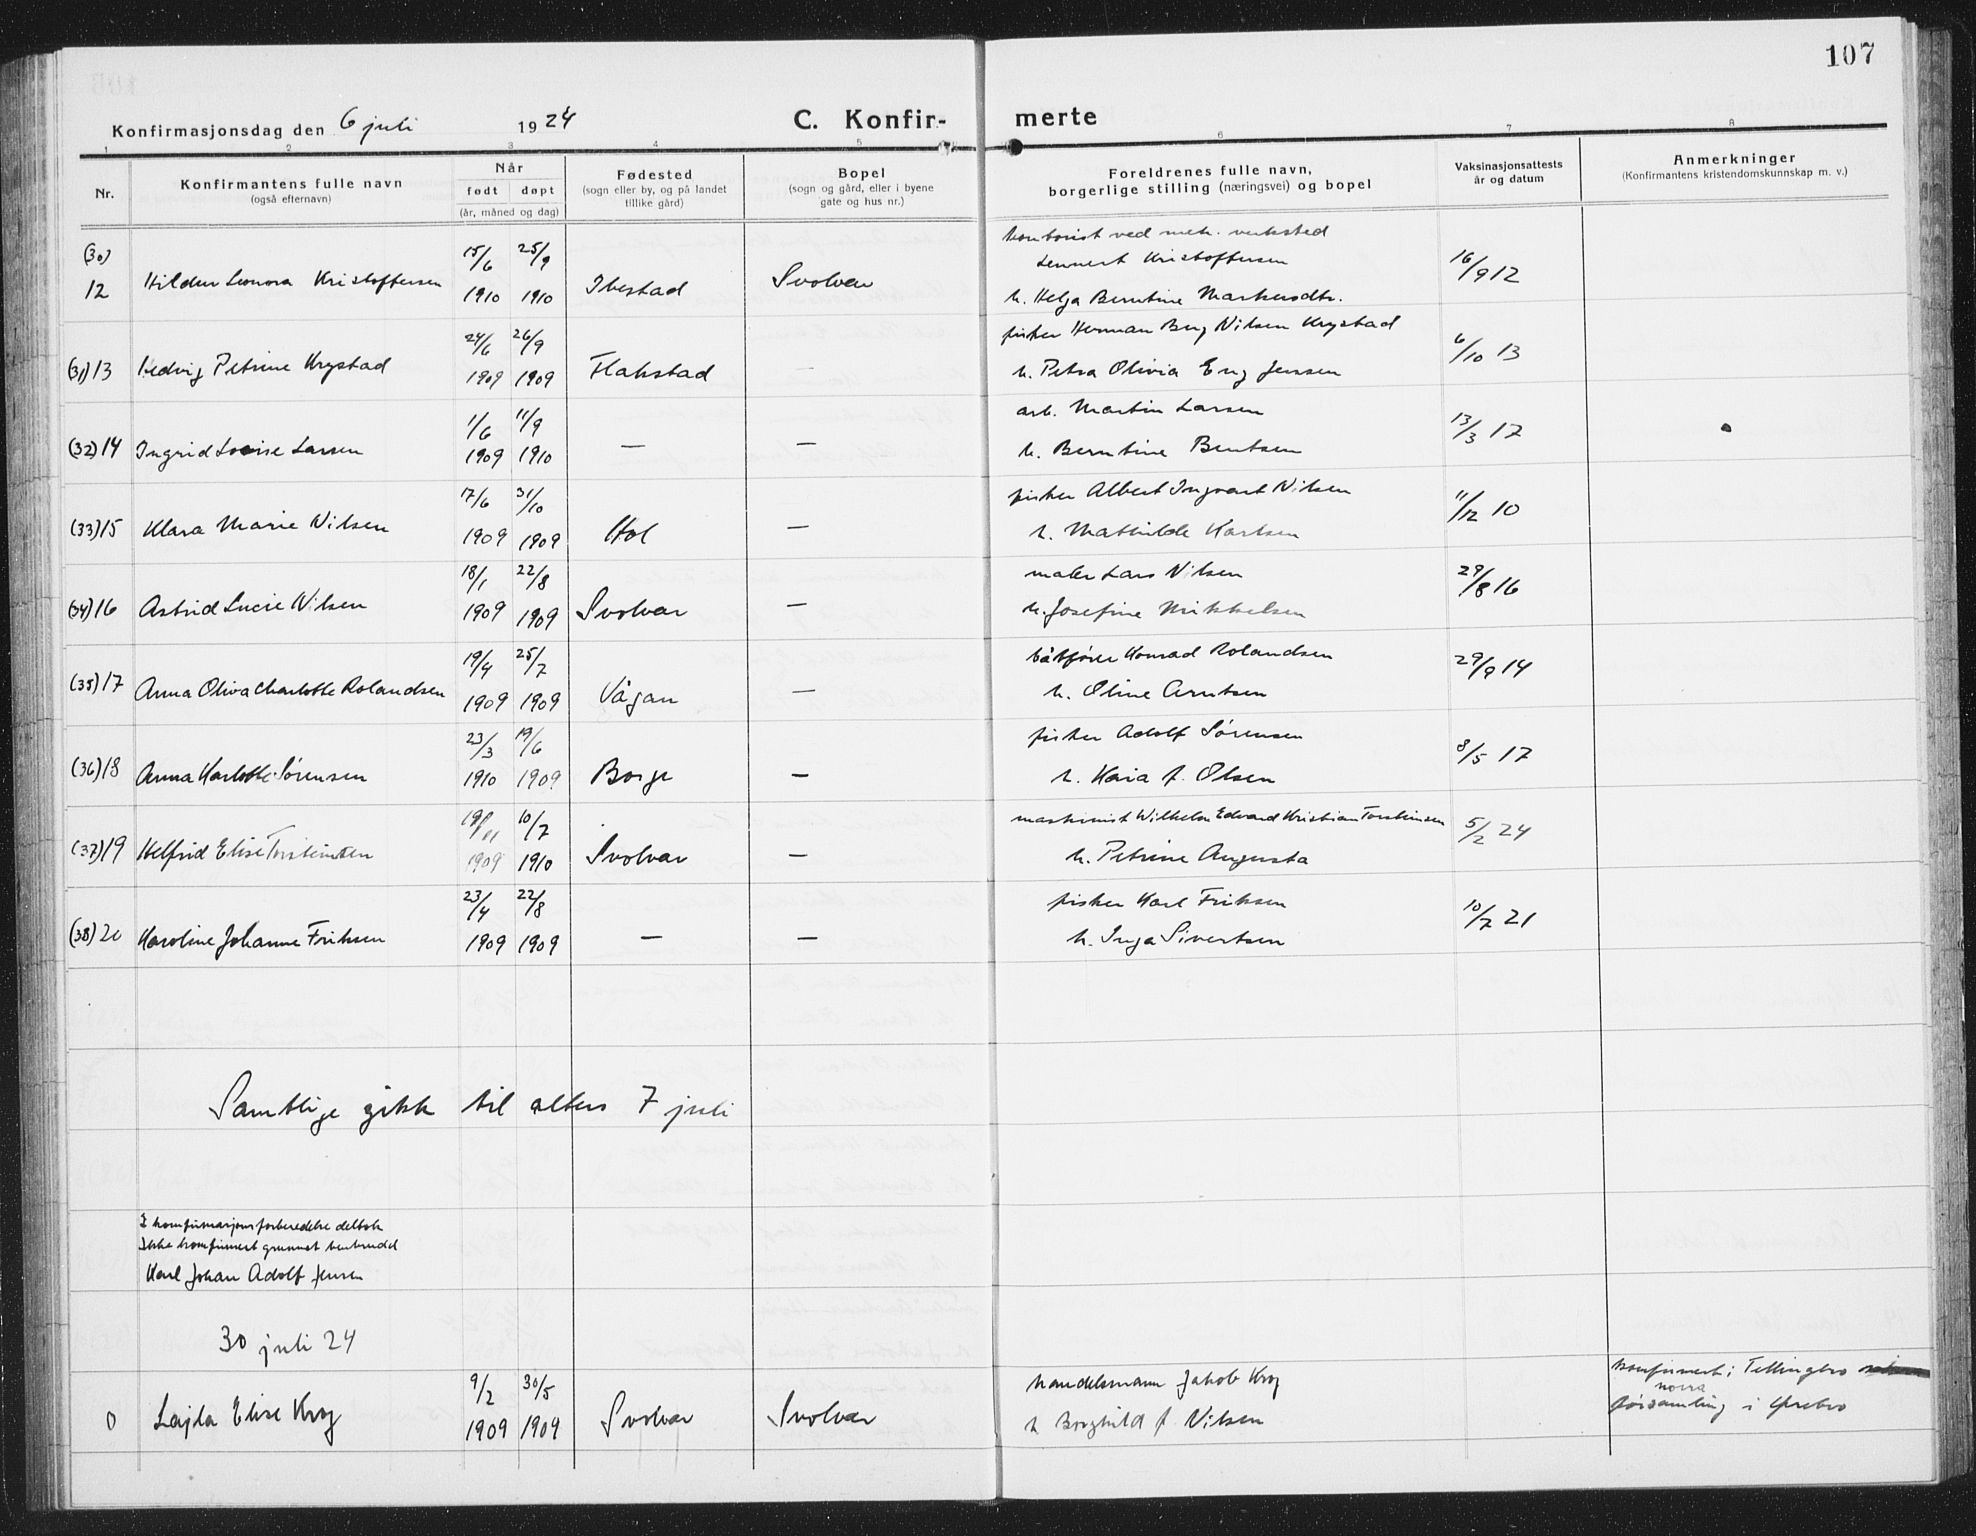 107
Konfirmasjonsdag den 6 juli 1924
C. Konfir-merte
1 2 3 4 5 6 7 8
Nr.
Konfirmantens fulle navn
(også efternavn)
Når
født døpt
(år, måned og dag)
Fødested
(sogn eller by, og på landet
tillike gård)
Bopel
(sogn og gård, eller i byene
gate og hus nr.)
Foreldrenes fulle navn,
borgerlige stilling (næringsvei) og bopel
Vaksinasjonsattests
år og datum
Anmerkninger
(Konfirmantens kristendomskunnskap m. v.)
(30) 12 Hildur Leonora Kristoffersen 15/6 1910 25/9 1910 Ibestad Svolvær
kontorist ved mek. verksted
Lennert Kristoffersen
h. Helga Berntine Markusdtr. 16/9 12
(31) 13 Hedvig Petrine Krystad 24/6 1909 26/9 1909 Flakstad –
fisker Herman Berg Nilsen Krystad
h. Petra Olivia Eng Jensen 6/10 13
(32) 14 Ingrid Lovise Larsen 1/6 1909 11/9 1910 – –
arb. Martin Larsen
h. Berntine Bentsen 13/3 17
(33) 15 Klara Marie Nilsen 17/6 1909 31/10 1909 Hol –
fisker Albert Ingvart Nilsen
h. Mathilde Karlsen 11/12 10
(34) 16 Astrid Lucie Nilsen 18/1 1909 22/8 1909 Svolvær –
maler Lars Nilsen
h. Josefine Mikkelsen 29/8 16
(35) 17 Anna Oliva Charlotte Rolandsen 19/4 1909 25/7 1909 Vågan –
båtfører Konrad Rolandsen
h. Oline Arntsen 29/9 14
(36) 18 Anna Karlotte Sørensen 23/3 1910 19/6 1909 Borge –
fisker Adolf Sørensen
h. Karia f. Olsen 8/5 17
(37) 19 Helfrid Elise Torsteinsen 19/11 1909 10/7 1910 Svolvær –
maskinist Wilhelm Edvard Kristian Torsteinsen
h. Petrine Augusta 5/2 24
(38) 20 Karoline Johanne Friksen 23/4 1909 22/8 1909 – –
fisker Karl Friksen
h. Inga Sivertsen 10/7 21
Samtlige gikk til alters 7 juli
I konfirmasjonsforberedelse deltok
Ikke konfirmert grunnet benbrudd
Karl Johan Adolf Jensen
30 juli 24
0 Lajla Elise Krog 9/2 1909 30/5 1909 Svolvær Svolvær
handelsmann Jakob Krog
h Borghild f. Nilsen
konfirmert i Tellingbro
norra
församling i Ørebro